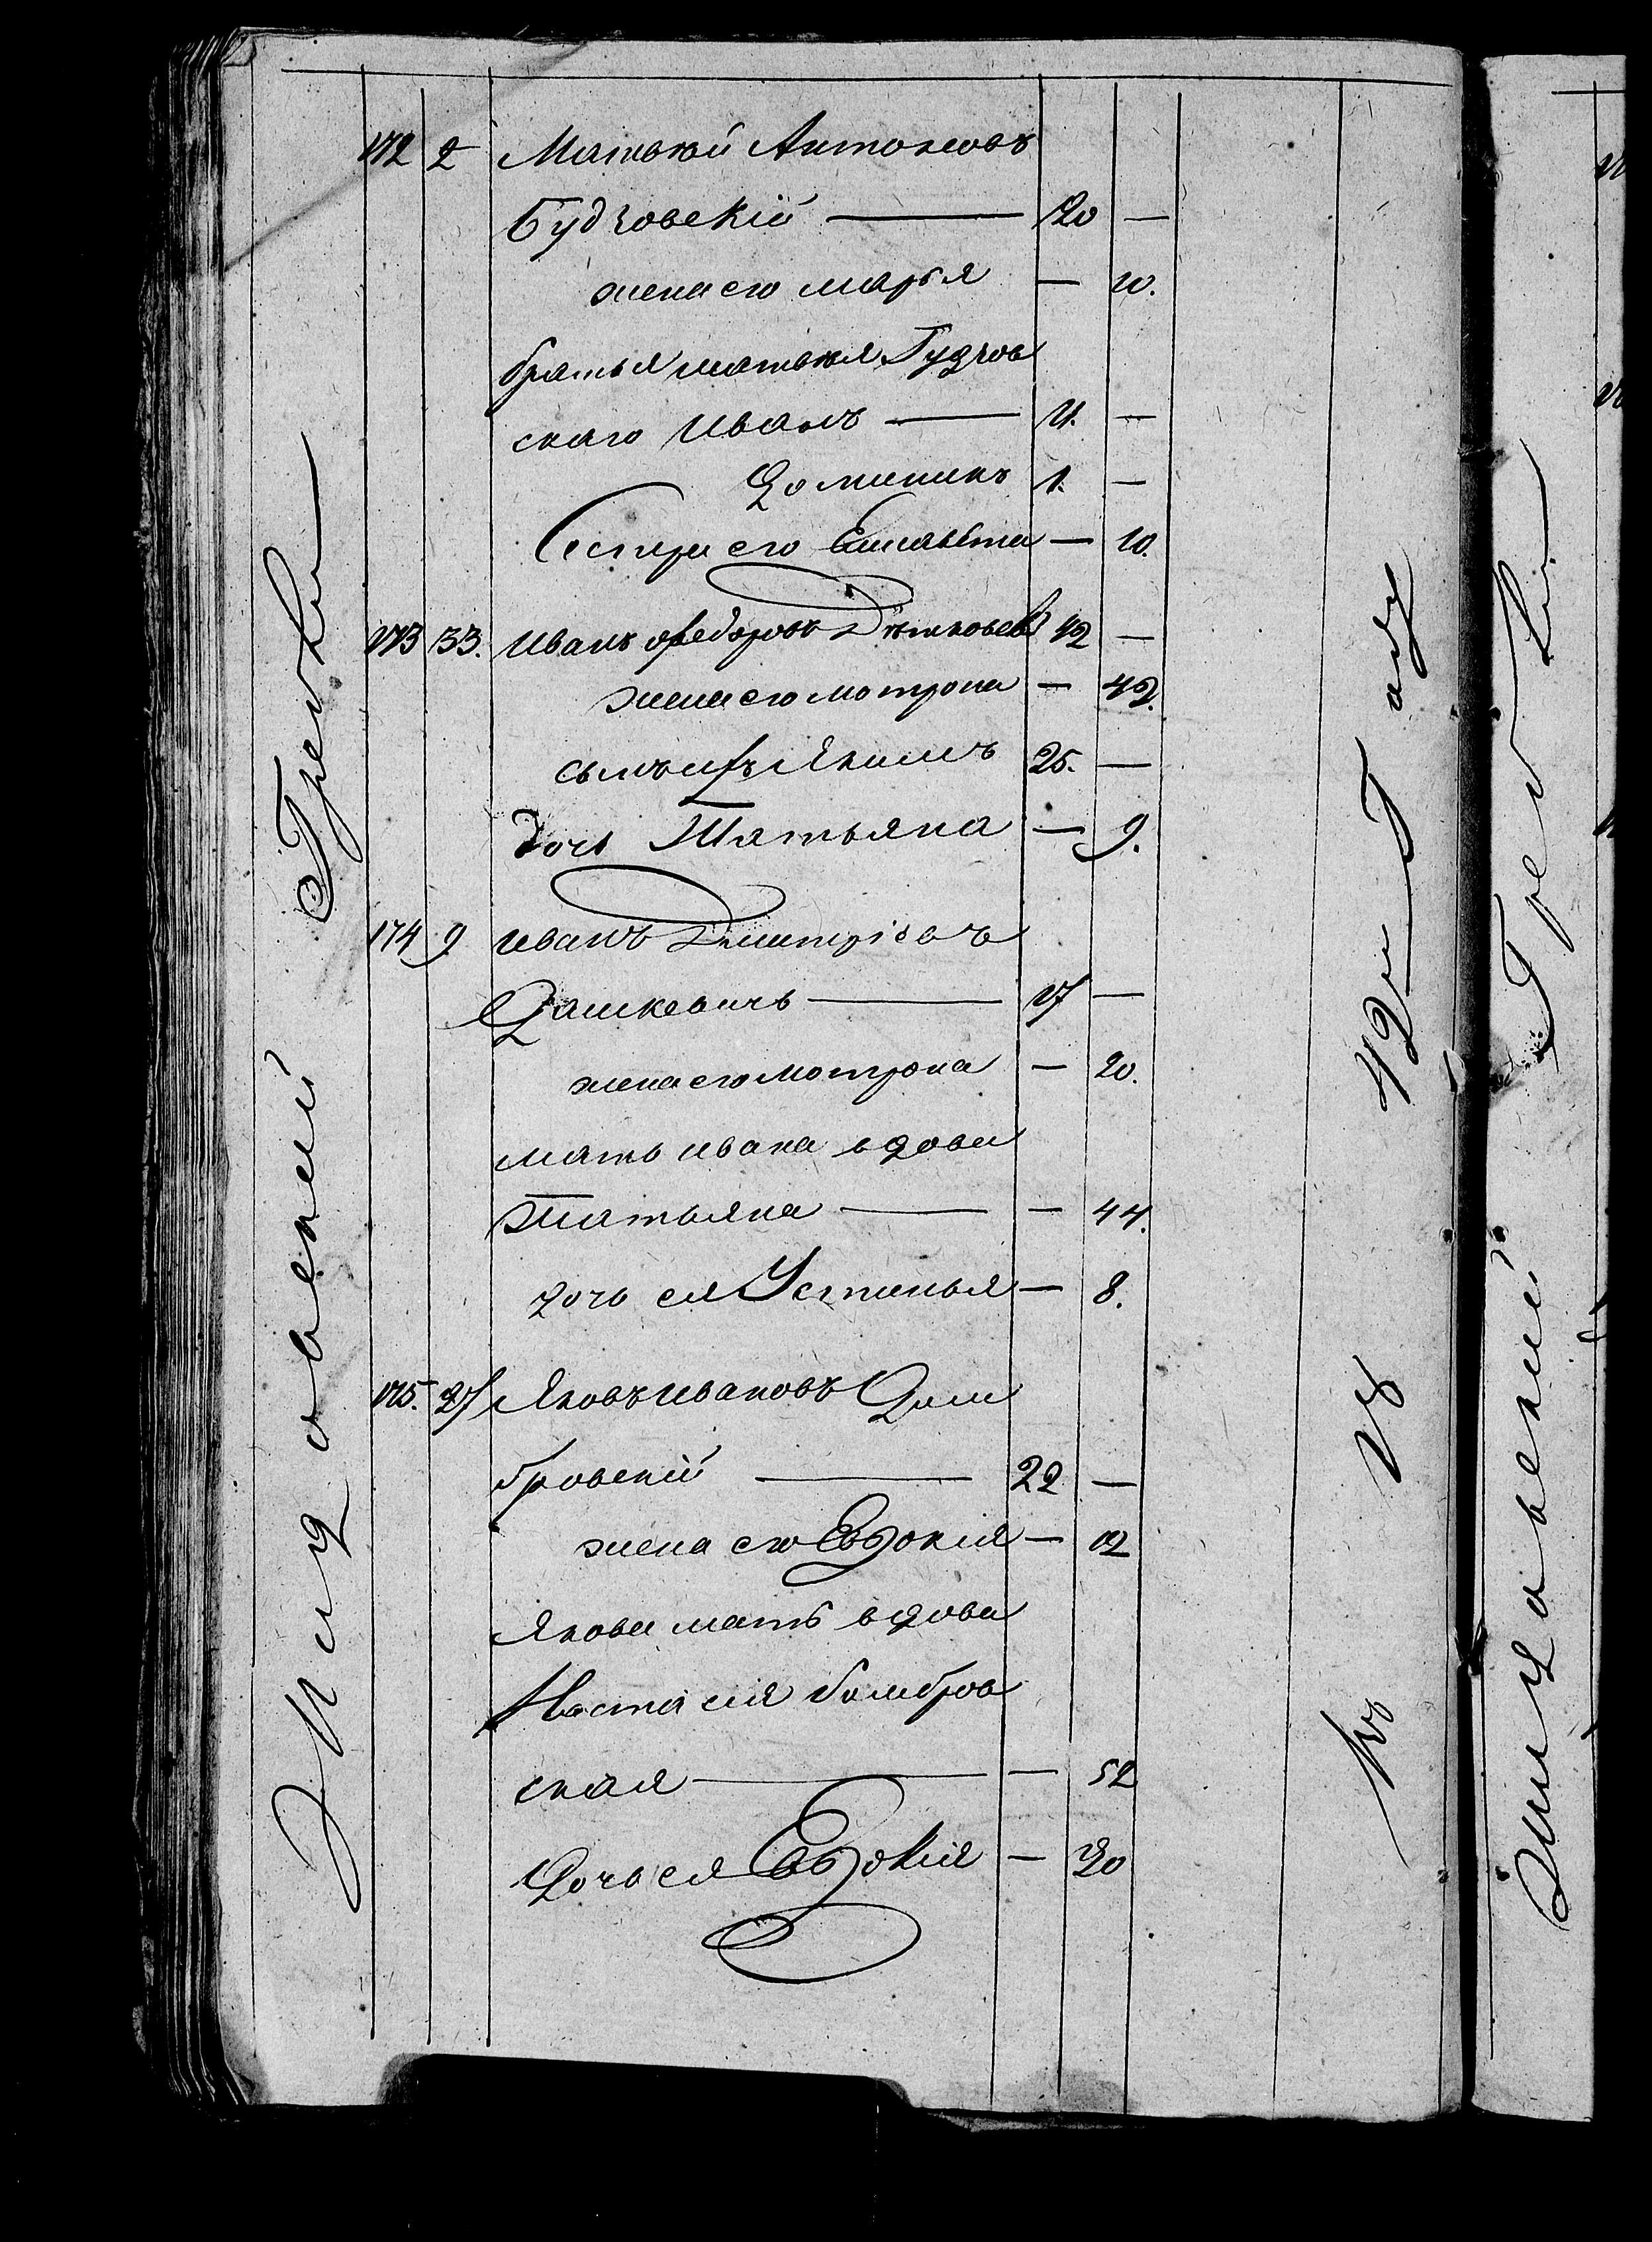 172 2 Матвѣй Антоновъ
Будзовскій — 20 —
жена его Марья — 20.
братья Матвѣя Гудзов
скаго Иванъ — 11. —
Доминикъ 1. —
Сестра его Елисавѣта — 10.
173 33. Иванъ Федоровъ 42 —
жена его Мотрона — 42.
сынъ ихъ Якимъ 25. —
дочь Татьяна — 9.
174 9. Иванъ Дмитріевъ
Дашкевичъ — 17 —
жена его Мотрона — 20.
мать Ивана вдова
Татьяна — 44.
дочь ея Устинья — 8.
175. 27 Яковъ Ивановъ Дом
бровскій — 22 —
жена его Евдокія — 12
Якова мать вдова
Настасия Домбров
ская — 52
Дочь ея Евдокія — 20
Въ 18 42 м Году